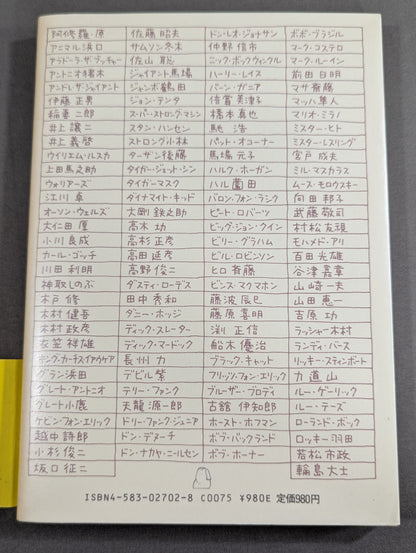 阿修羅・原
アニマル浜口
アブドーラ・ザ・ブッチャー
アントニオ猪木
アンドレ・ザ・ジャイアント
伊藤正男
稲妻二郎
井上譲二
井上義啓
ウイリエム・ルスカ
上田馬之助
ウォリアーズ
江川卓
オーソン・ウェルズ
大仁田厚
小川良成
カール・ゴッチ
川田利明
神取しのぶ
木戸修
木村健吾
木村政彦
衣笠祥雄
キング・カーチス・イアウケア
グラン浜田
グレート・アントニオ
グレート小鹿
ケビン・フォン・エリック
越中詩郎
小杉俊二
坂口征二
佐藤昭夫
サムソン冬木
佐山聡
ジャイアント馬場
ジャンボ鶴田
ジョン・テンタ
スーパー・ストロング・マシン
スタン・ハンセン
ストロング小林
ターザン後藤
タイガー・ジェット・シン
タイガーマスク
ダイナマイト・キッド
大剛鉄之助
高木功
高杉正彦
高田延彦
高野俊二
ダスティ・ローデス
田中秀和
ダニー・ホッジ
ディック・スレーター
ディック・マードック
長州力
デビル紫
テリー・ファンク
天龍源一郎
ドリー・ファンク・ジュニア
ドン・デヌーチ
ドン・ナカヤ・ニールセン
ドン・レオ・ジョナサン
仲野信市
ニック・ボックウィンクル
ハーリー・レイス
バーン・ガニア
倍賞美津子
橋本真也
馳浩
パット・オコーナー
馬場元子
ハルク・ホーガン
ハル薗田
バロン・フォン・ラシク
ピート・ロバーツ
ビッグ・ジョン・クイン
ビリー・グラハム
ビル・ロビンソン
ヒロ斉藤
ビンス・マクマホン
藤波辰巳
藤原喜明
渕正信
船木優治
ブラック・キャット
フリッツ・フォン・エリック
ブルーザー・ブロディ
古舘伊知郎
ホースト・ホフマン
ボブ・バックランド
ボブ・ホーナー
ボボ・ブラジル
マーク・コステロ
マーク・ルーイン
前田日明
マサ斎藤
マッハ隼人
マリオ・ミラノ
ミスター・ヒト
ミスター・レスリング
宮戸成夫
ミル・マスカラス
ムース・モロウスキー
向田邦子
武藤敬司
村松友視
モハメド・アリ
百田光雄
谷津嘉章
山崎一夫
山田恵一
吉原功
ラッシャー木村
ランディ・バース
リッキー・スティンボート
力道山
ルー・ゲーリック
ルー・テーズ
ローランド・ボック
ロッキー羽田
若松市政
輪島大士
ISBN4-583-02702-8 C0075 ¥980E 定価980円